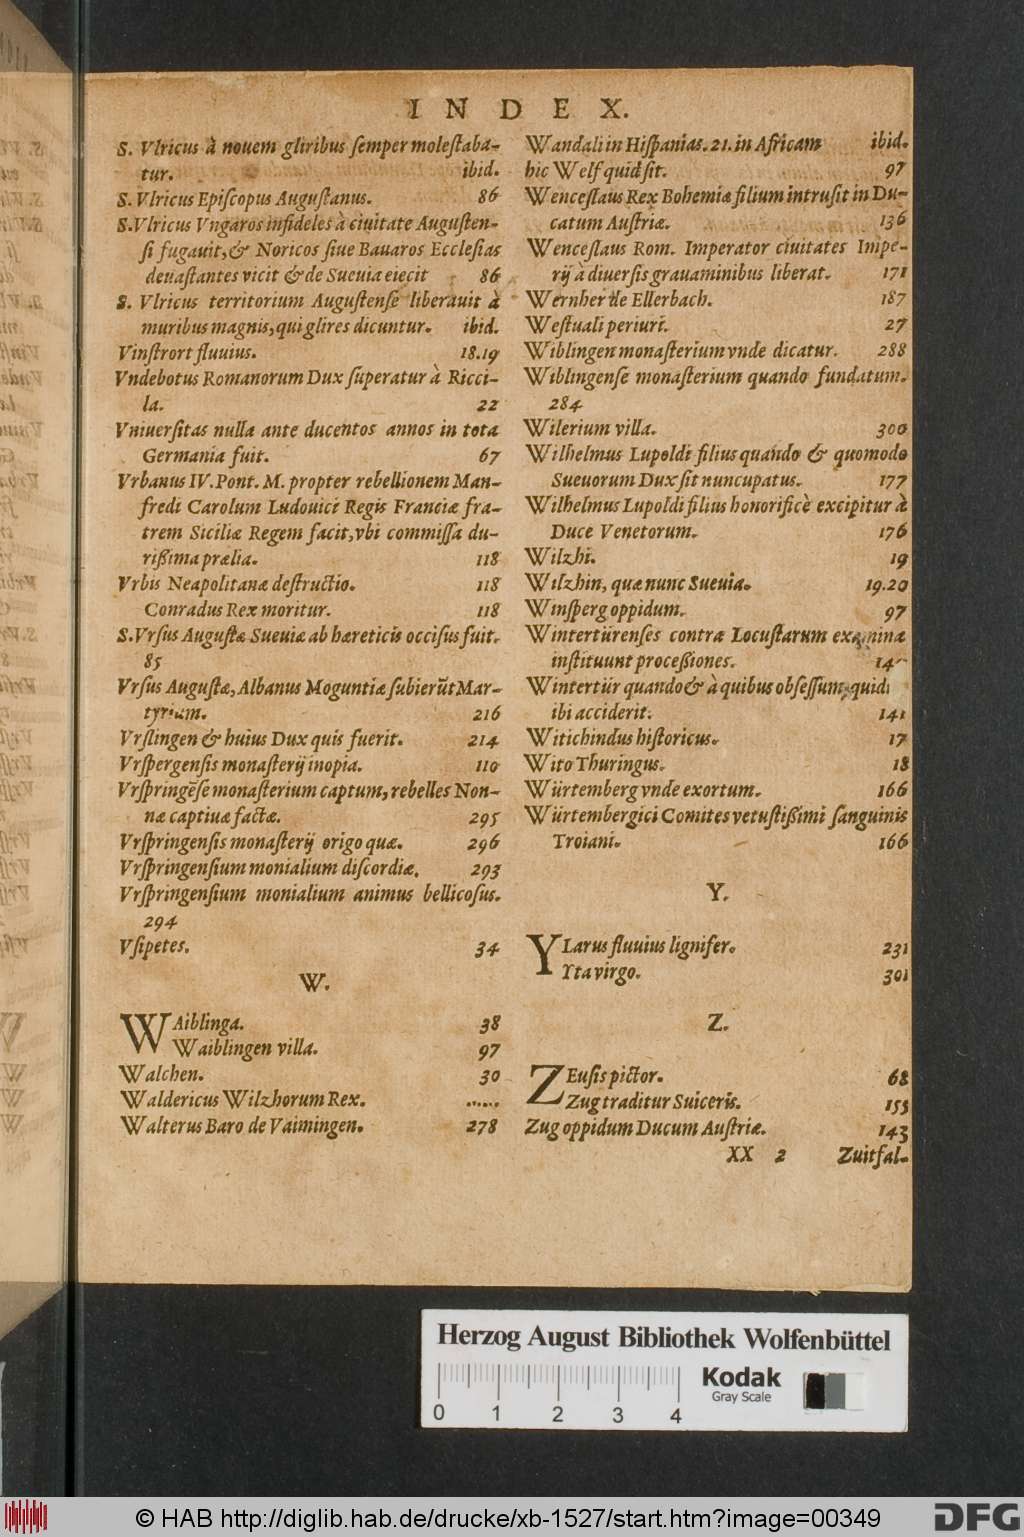 INDEX.
S. Vlricus à nouem gliribus ſemper moleſtaba-
tur. ibid.
S. Vlricus Epiſcopus Auguſtanus. 86
S. Vlricus Vngaros infideles à ciuitate Auguſten-
ſi fugauit, & Noricos ſiue Bauaros Eccleſias
deuaſtantes vicit & de Sueuia eiecit 86
S. Vlricus territorium Auguſtenſe liberauit à
muribus magnis, qui glires dicuntur. ibid.
Vinſtrort fluuius. 18.19
Vndebotus Romanorum Dux ſuperatur à Ricci-
la. 22
Vniuerſitas nulla ante ducentos annos in tota
Germania fuit. 67
Vrbanus IV. Pont. M. propter rebellionem Man-
fredi Carolum Ludouici Regis Franciæ fra-
trem Siciliæ Regem facit, vbi commiſſa du-
rißima prælia. 118
Vrbis Neapolitanæ deſtructio. 118
Conradus Rex moritur. 118
S. Vrſus Auguſtæ Sueuiæ ab hæreticis occiſus fuit.
85
Vrſus Auguſtæ, Albanus Moguntiæ ſubierūt Mar-
tyrium. 216
Vrſlingen & huius Dux quis fuerit. 214
Vrſpergenſis monaſterij inopia. 110
Vrſpringēſe monaſterium captum, rebelles Non-
næ captiuæ factæ. 295
Vrſpringenſis monaſterij origo quæ. 296
Vrſpringenſium monialium diſcordiæ. 293
Vrſpringenſium monialium animus bellicoſus.
294
Vſipetes. 34
W.
WAiblinga. 38
Waiblingen villa. 97
Walchen. 30
Waldericus Wilzhorum Rex. ......
Walterus Baro de Vaimingen. 278
Wandali in Hiſpanias. 21. in Africam ibid.
hic Welf quid ſit. 97
Wenceſlaus Rex Bohemiæ filium intruſit in Du-
catum Auſtriæ. 136
Wenceſlaus Rom. Imperator ciuitates Impe-
rij à diuerſis grauaminibus liberat. 171
Wernher de Ellerbach. 187
Weſtuali periuri. 27
Wiblingen monaſterium vnde dicatur. 288
Wiblingenſe monaſterium quando fundatum.
284
Wilerium villa. 300
Wilhelmus Lupoldi filius quando & quomodo
Sueuorum Dux ſit nuncupatus. 177
Wilhelmus Lupoldi filius honorificè excipitur à
Duce Venetorum. 176
Wilzhi. 19
Wilzhin, quæ nunc Sueuia. 19.20
Winſperg oppidum. 97
Wintertürenſes contra Locuſtarum examina
inſtituunt proceßiones.
Wintertür quando & à quibus obſeſſum, quid
ibi acciderit. 141
Witichindus hiſtoricus. 17
Wito Thuringus. 18
Würtemberg vnde exortum. 166
Würtembergici Comites vetuſtißimi ſanguinis
Troiani. 166
Y.
YLarus fluuius lignifer. 231
Yta virgo. 301
Z.
ZEuſis pictor. 68
Zug traditur Suiceris. 155
Zug oppidum Ducum Auſtriæ. 143
XX 2 Zuitfal-
Herzog August Bibliothek Wolfenbüttel
Kodak
Gray Scale
0 1 2 3 4
© HAB http://diglib.hab.de/drucke/xb-1527/start.htm?image=00349
DFG